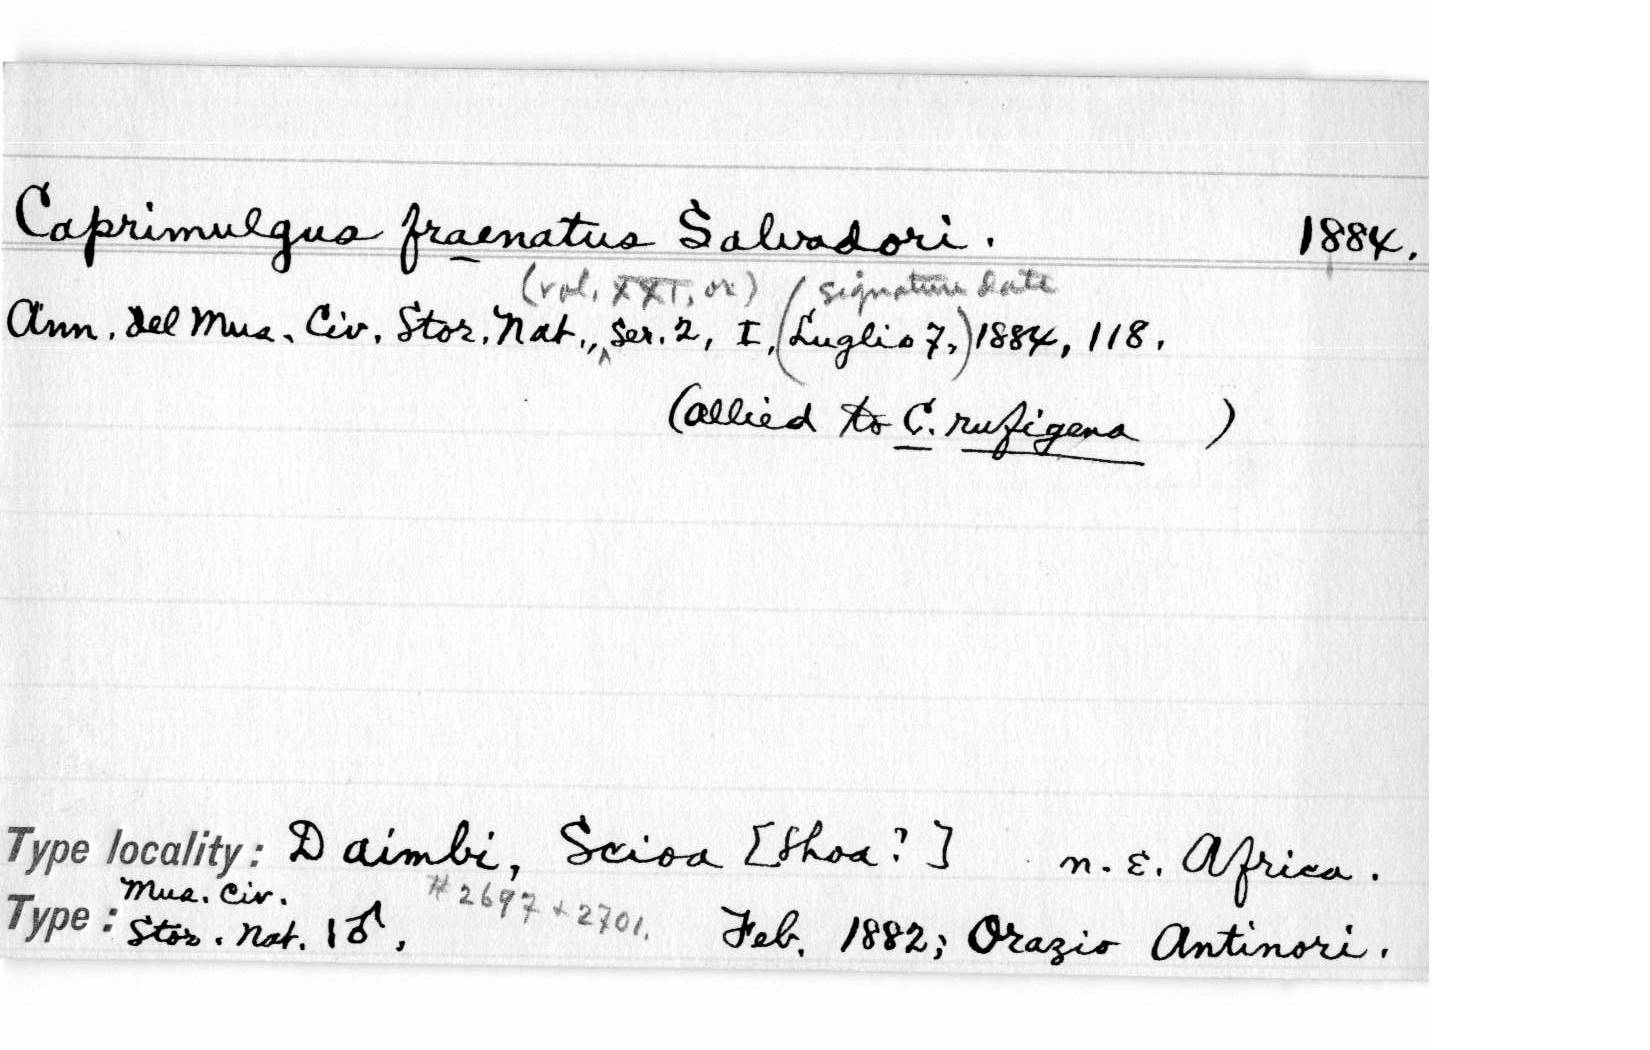 Caprimulgus fraenatus Salvadori. 1884.
(vol. XXI, or) (signature date
Ann. del Mus. Civ. Stor. Nat., ^ Ser. 2, I, (Luglio 7,) 1884, 118.
(allied to C. rufigena )
Type locality: Daimbi, Scioa [Shoa?] n. E. Africa.
Mus. Civ. #2697 + 2701.
Type: Stor. Nat. 1♂, Feb. 1882; Orazio Antinori.